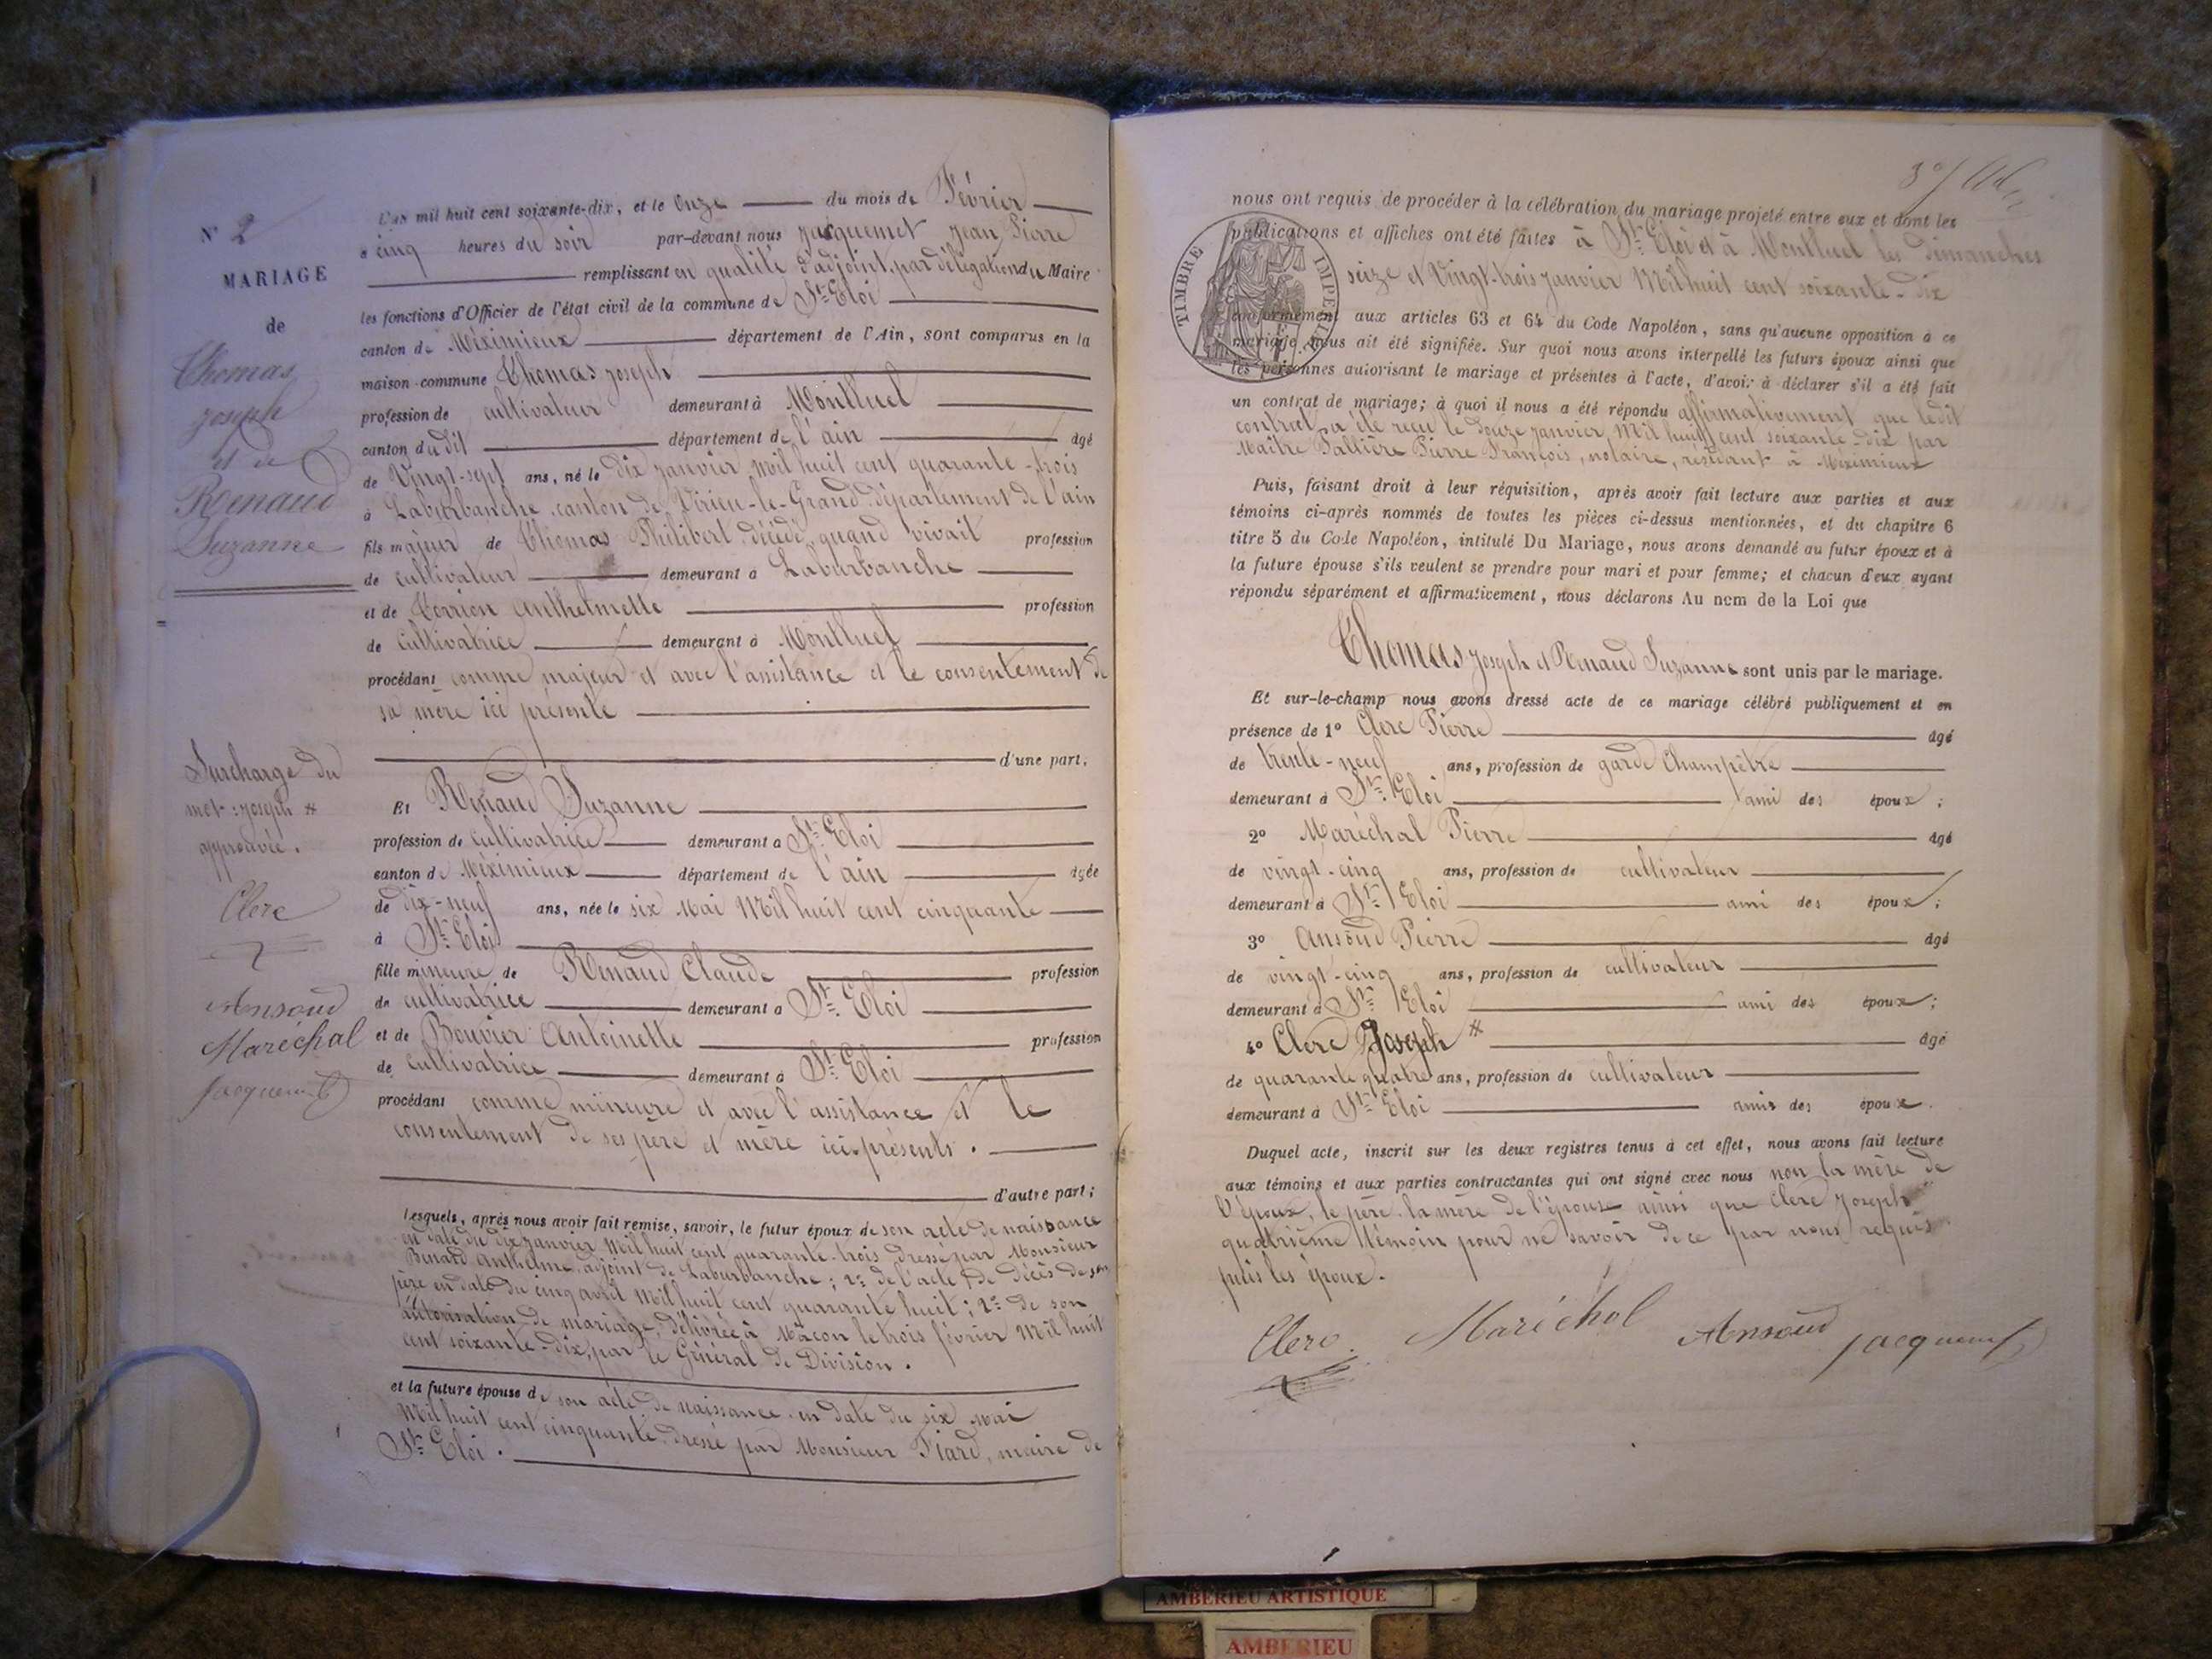 N° 2
MARIAGE
de
Thomas
Joseph
et de
Renaud
Suzanne
L'an mil huit cent soixante-dix, et le Onze du mois de Février
à cinq heures du soir par-devant nous Jacquemet Jean Pierre
remplissant en qualité d'adjoint, par délégation du Maire
les fonctions d'Officier de l'état civil de la commune de St Eloi
canton de Méximieux département de l'Ain, sont comparus en la
maison commune Thomas Joseph
profession de cultivateur demeurant à Montluel
canton du dit département de l'ain âgé
de Vingt-sept ans, né le dix janvier mil huit cent quarante-trois
à Laburbanche canton de Virieu-le-Grand département de l'ain
fils majeur de Thomas Philibert décédé, quand vivait profession
de cultivateur demeurant à Laburbanche
et de Anthelmette profession
de cultivatrice demeurant à Montluel
procédant comme majeur et avec l'assistance et le consentement de
sa mère ici présente
d'une part.
Surcharge du
mot : Joseph #
approuvée.
Clerc
Ansoud
Maréchal
Jacquemet
Et Renaud Suzanne
profession de cultivatrice demeurant à St Eloi
canton de Méximieux département de l'ain âgée
de dix-neuf ans, née le six Mai Mil huit cent cinquante
à St Eloi
fille mineure de Renaud Claude profession
de cultivatrice demeurant à St Eloi
et de Bouvier Antoinette profession
de cultivatrice demeurant à St Eloi
procédant comme mineure et avec l'assistance et le
consentement de ses père et mère ici présents.
d'autre part;
Lesquels, après nous avoir fait remise, savoir, le futur époux de son acte de naissance
en date du dix janvier Mil huit cent quarante-trois dressé par Monsieur
Anthelme, adjoint de Laburbanche; 2° de l'acte de décès de son
père en date du cinq avril Mil huit cent quarante huit; 2° de son
autorisation de mariage, délivrée à Mâcon le trois février Mil huit
cent soixante-dix, par le Général de Division.
et la future épouse de son acte de naissance en date du six mai
Mil huit cent cinquante dressé par Monsieur Fiard, maire de
St Eloi.
nous ont requis de procéder à la célébration du mariage projeté entre eux et dont les
publications et affiches ont été faites à St Eloi et à Montluel les dimanches
seize et Vingt-trois janvier Mil huit cent soixante-dix
TIMBRE IMPÉRIAL
conformément aux articles 63 et 64 du Code Napoléon, sans qu'aucune opposition à ce
mariage nous ait été signifiée. Sur quoi nous avons interpellé les futurs époux ainsi que
les personnes autorisant le mariage et présentes à l'acte, d'avoir à déclarer s'il a été fait
un contrat de mariage; à quoi il nous a été répondu affirmativement que ledit
contrat a été reçu le douze janvier Mil huit cent soixante-dix par
Maître Pallière Pierre François, notaire, résidant à Méximieux
Puis, faisant droit à leur réquisition, après avoir fait lecture aux parties et aux
témoins ci-après nommés de toutes les pièces ci-dessus mentionnées, et du chapitre 6
titre 5 du Code Napoléon, intitulé Du Mariage, nous avons demandé au futur époux et à
la future épouse s'ils veulent se prendre pour mari et pour femme; et chacun d'eux ayant
répondu séparément et affirmativement, nous déclarons Au nom de la Loi que
Thomas Joseph et Renaud Suzanne sont unis par le mariage.
Et sur-le-champ nous avons dressé acte de ce mariage célébré publiquement et en
présence de 1° Clerc Pierre âgé
de trente-neuf ans, profession de garde Champêtre
demeurant à St Eloi ami des époux;
2° Maréchal Pierre âgé
de vingt-cinq ans, profession de cultivateur
demeurant à St Eloi ami des époux;
3° Ansoud Pierre âgé
de vingt-cinq ans, profession de cultivateur
demeurant à St Eloi ami des époux;
4° Clerc Joseph # âgé
de quarante quatre ans, profession de cultivateur
demeurant à St Eloi amis des époux.
Duquel acte, inscrit sur les deux registres tenus à cet effet, nous avons fait lecture
aux témoins et aux parties contractantes qui ont signé avec nous non la mère de
l'époux, le père la mère de l'épouse ainsi que Clerc Joseph
quatrième témoin pour ne savoir de ce par nous requis
puis les époux.
Clerc Maréchal Ansoud Jacquemet
AMBERIEU ARTISTIQUE
AMBERIEU